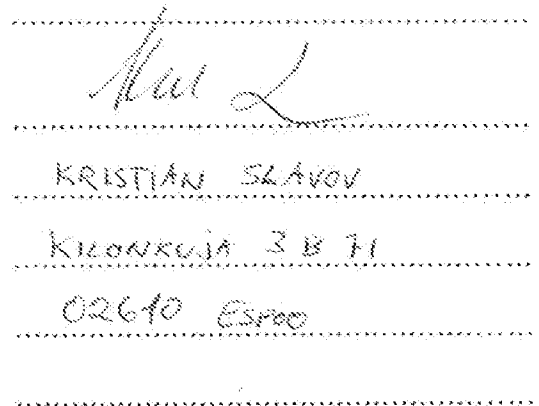 KRISTIAN SLAVOV
KILONKUJA 3 B 71
02610 ESPOO